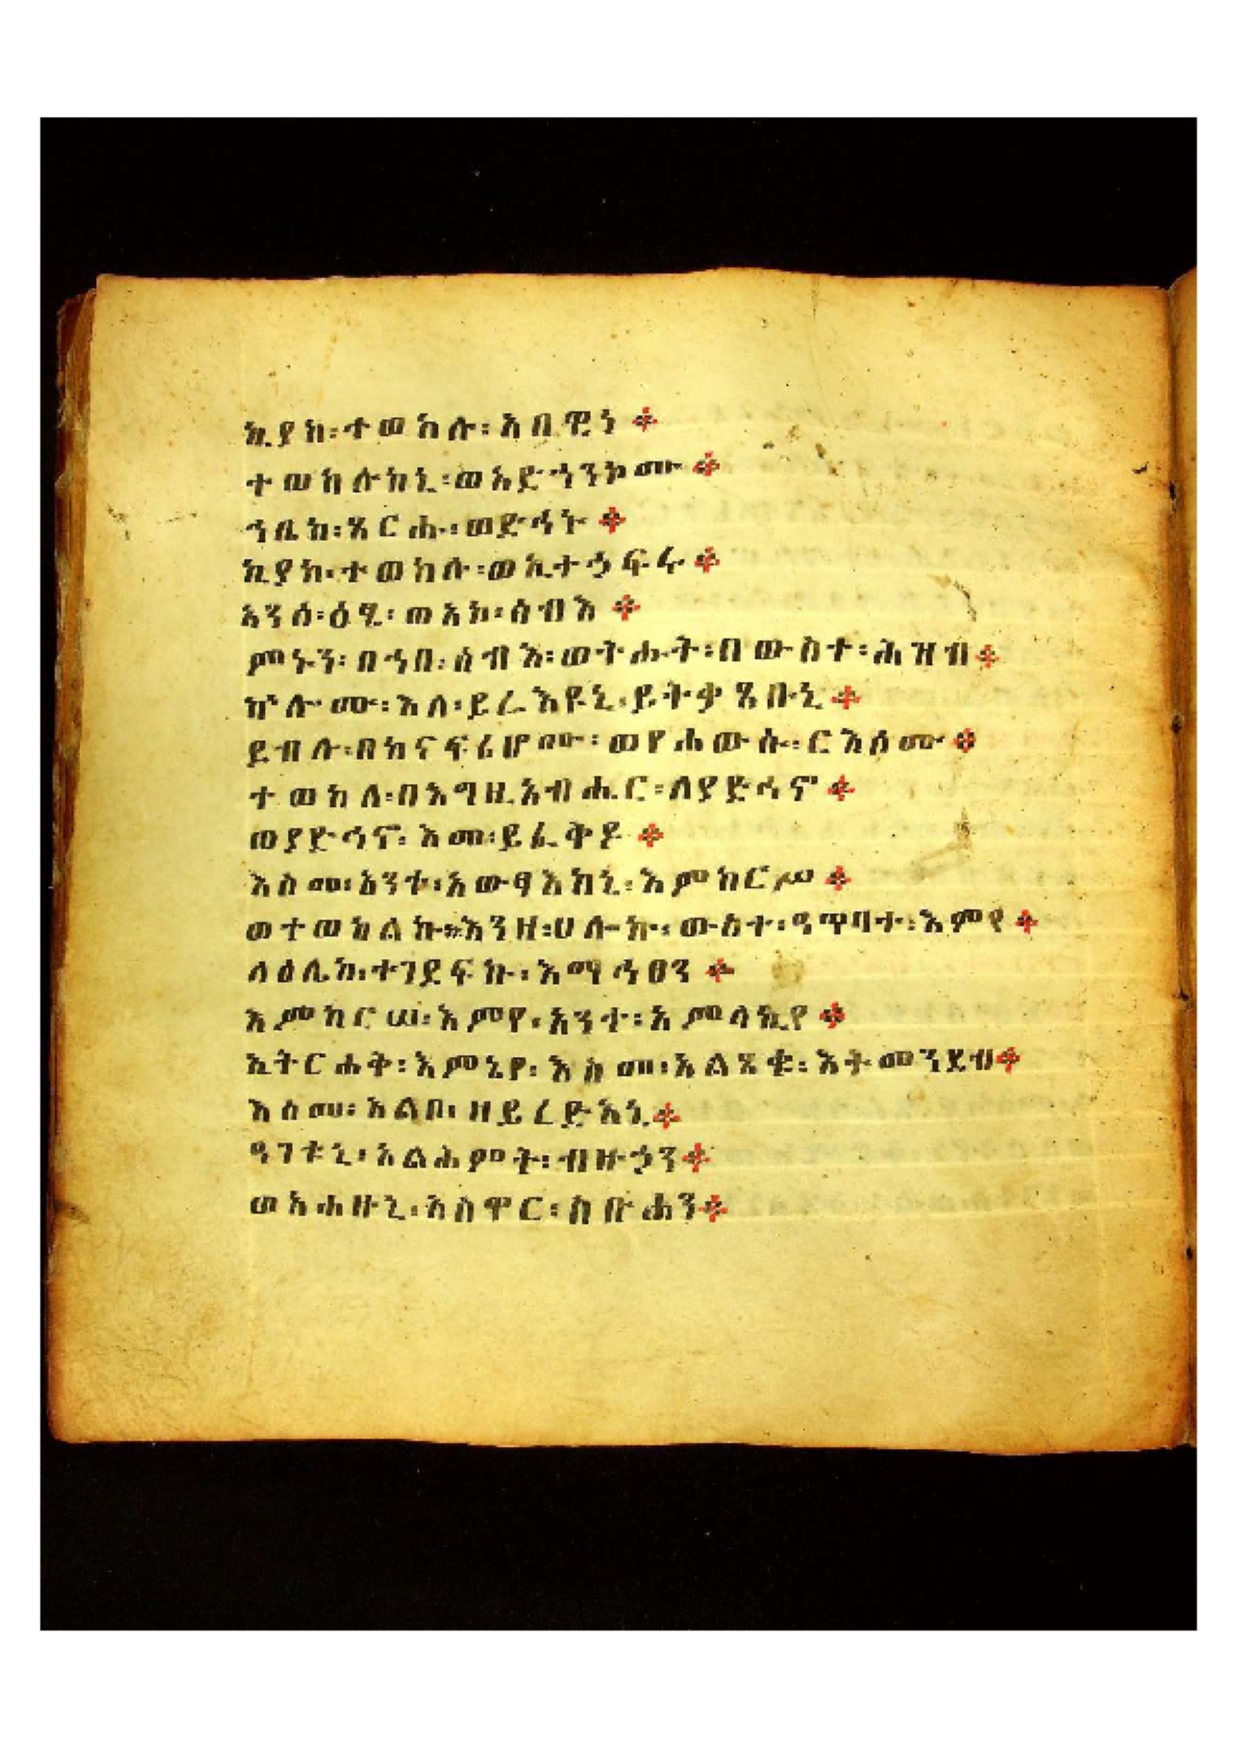 ኪያከ፡ተወከሉ፡አበዊነ ፨
ተወከሉከኒ፡ወአድኀንኮሙ ፨
ኀቤከ፡ጸርሑ፡ወድኅኑ ፨
ኪያከ፡ተወከሉ፡ወኢተኃፍሩ ፨
አንሰ፡ዕፂ፡ወአኮ፡ሰብእ ፨
ምኑን፡በኀበ፡ሰብእ፡ወትሑት፡በውስተ፡ሕዝብ ፨
ኵሎሙ፡እለ፡ይሬእዩኒ፡ይትቃጸቡኒ ፨
ይብሉ፡በከናፍሪሆሙ፡ወየሐውሱ፡ርእሰሙ ፨
ተወከለ፡በእግዚአብሔር፡ለያድኅኖ ፨
ወያድኅኖ፡እመ፡ይፈቅዶ ፨
እስመ፡አንተ፡አውፃእከኒ፡እምከርሥ ፨
ወተወከልኩ፡እንዘ፡ሀሎኩ፡ውስተ፡ዓጥባተ፡እምየ ፨
ላዕሌከ፡ተገደፍኩ፡እማኅፀን ፨
እምከርሠ፡እምየ፡አንተ፡አምላኪየ ፨
ኢትርሐቅ፡እምኔየ፡እስመ፡አልጸቁ፡እትመንደብ ፨
እስመ፡አልቦ፡ዘይረድአኒ ፨
ዓገቱኒ፡አልሕምት፡ብዙኃን ፨
ወአሐዙኒ፡አስዋር፡ስቡሐን ፨